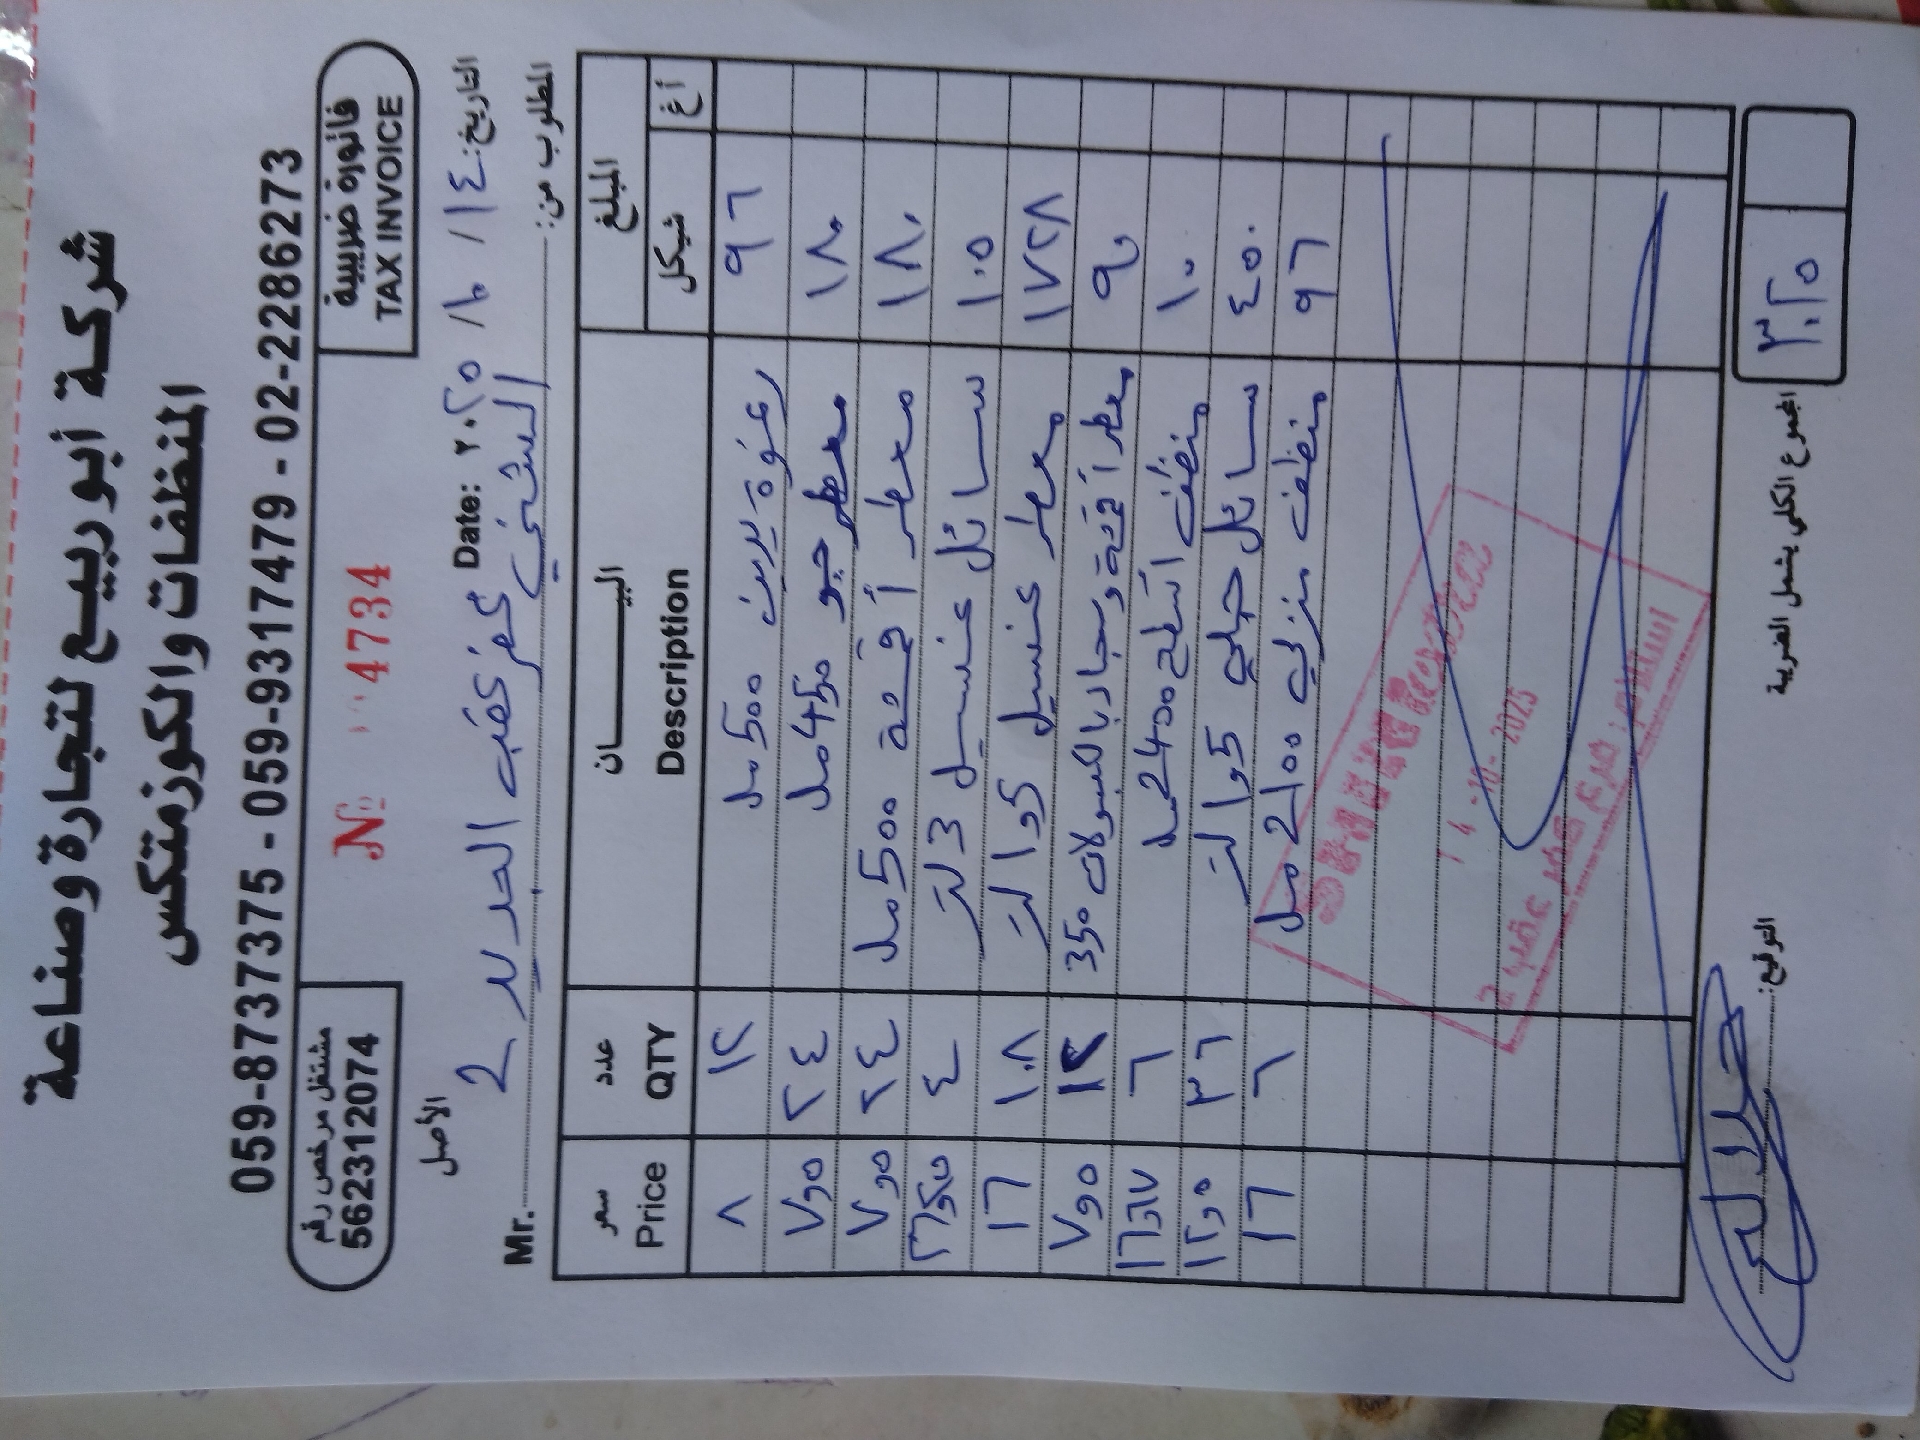 شركة أبو ربيع لتجارة وصناعة
المنظفات والكوزمتكس
059-8737375 - 059-9317479 - 02-2286273
فاتورة ضريبية
TAX INVOICE
№ 4734
مشتغل مرخص رقم
562312074
التاريخ: ١٤ / ١٠ / ٢٠٢٥ Date:
الأصل
المطلوب من: الشني كفر عقب الجديد 2 Mr.
المبلغ البيـــــان عدد سعر
أغ شيكل Description QTY Price
٩٦ رغوة يدين 500 مل ١٢ ٨
١٨٠ معطر جو 450 مل ٢٤ ٧٫٥
١٨٠ معطر أقمشة 500 مل ٢٤ ٧٫٥
١٠٥ سائل غسيل 3 لتر ٤
١٧٢٨ معطر غسيل 5 لتر ١٠٨ ١٦
٩٠ معطر أقمشة وسجاد 350 ١٢ ٧٫٥
١٠٠ منظف أسطح 2400 مل ٦ ١٦٫٦٧
٤٥٠ سائل جلي 5 لتر ٣٦ ١٢٫٥
٩٦ منظف منزلي 2100 مل ٦ ١٦
14-10-2025
استلام: فرع كفر عقب 2
المجموع الكلي يشمل الضريبة ٣٠٢٥
التوقيع: